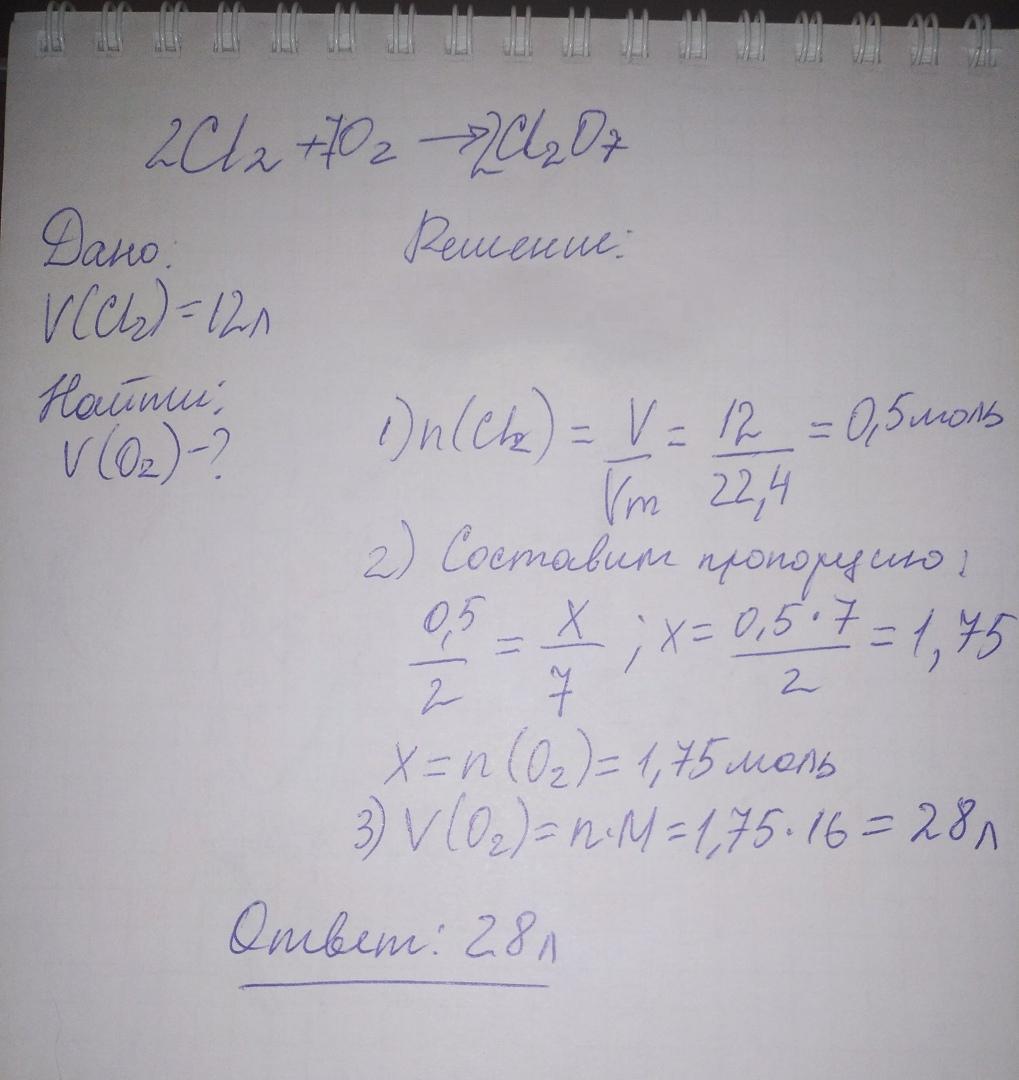 2Cl₂ + 7O₂ → 2Cl₂O₇
Дано:
V(Cl₂) = 12л
Найти:
V(O₂) - ?
Решение:
1) n(Cl₂) = V/Vm = 12/22,4 = 0,5 моль
2) Составим пропорцию:
0,5/2 = x/7 ; x = 0,5·7/2 = 1,75
x = n(O₂) = 1,75 моль
3) V(O₂) = n·M = 1,75·16 = 28л
Ответ: 28л